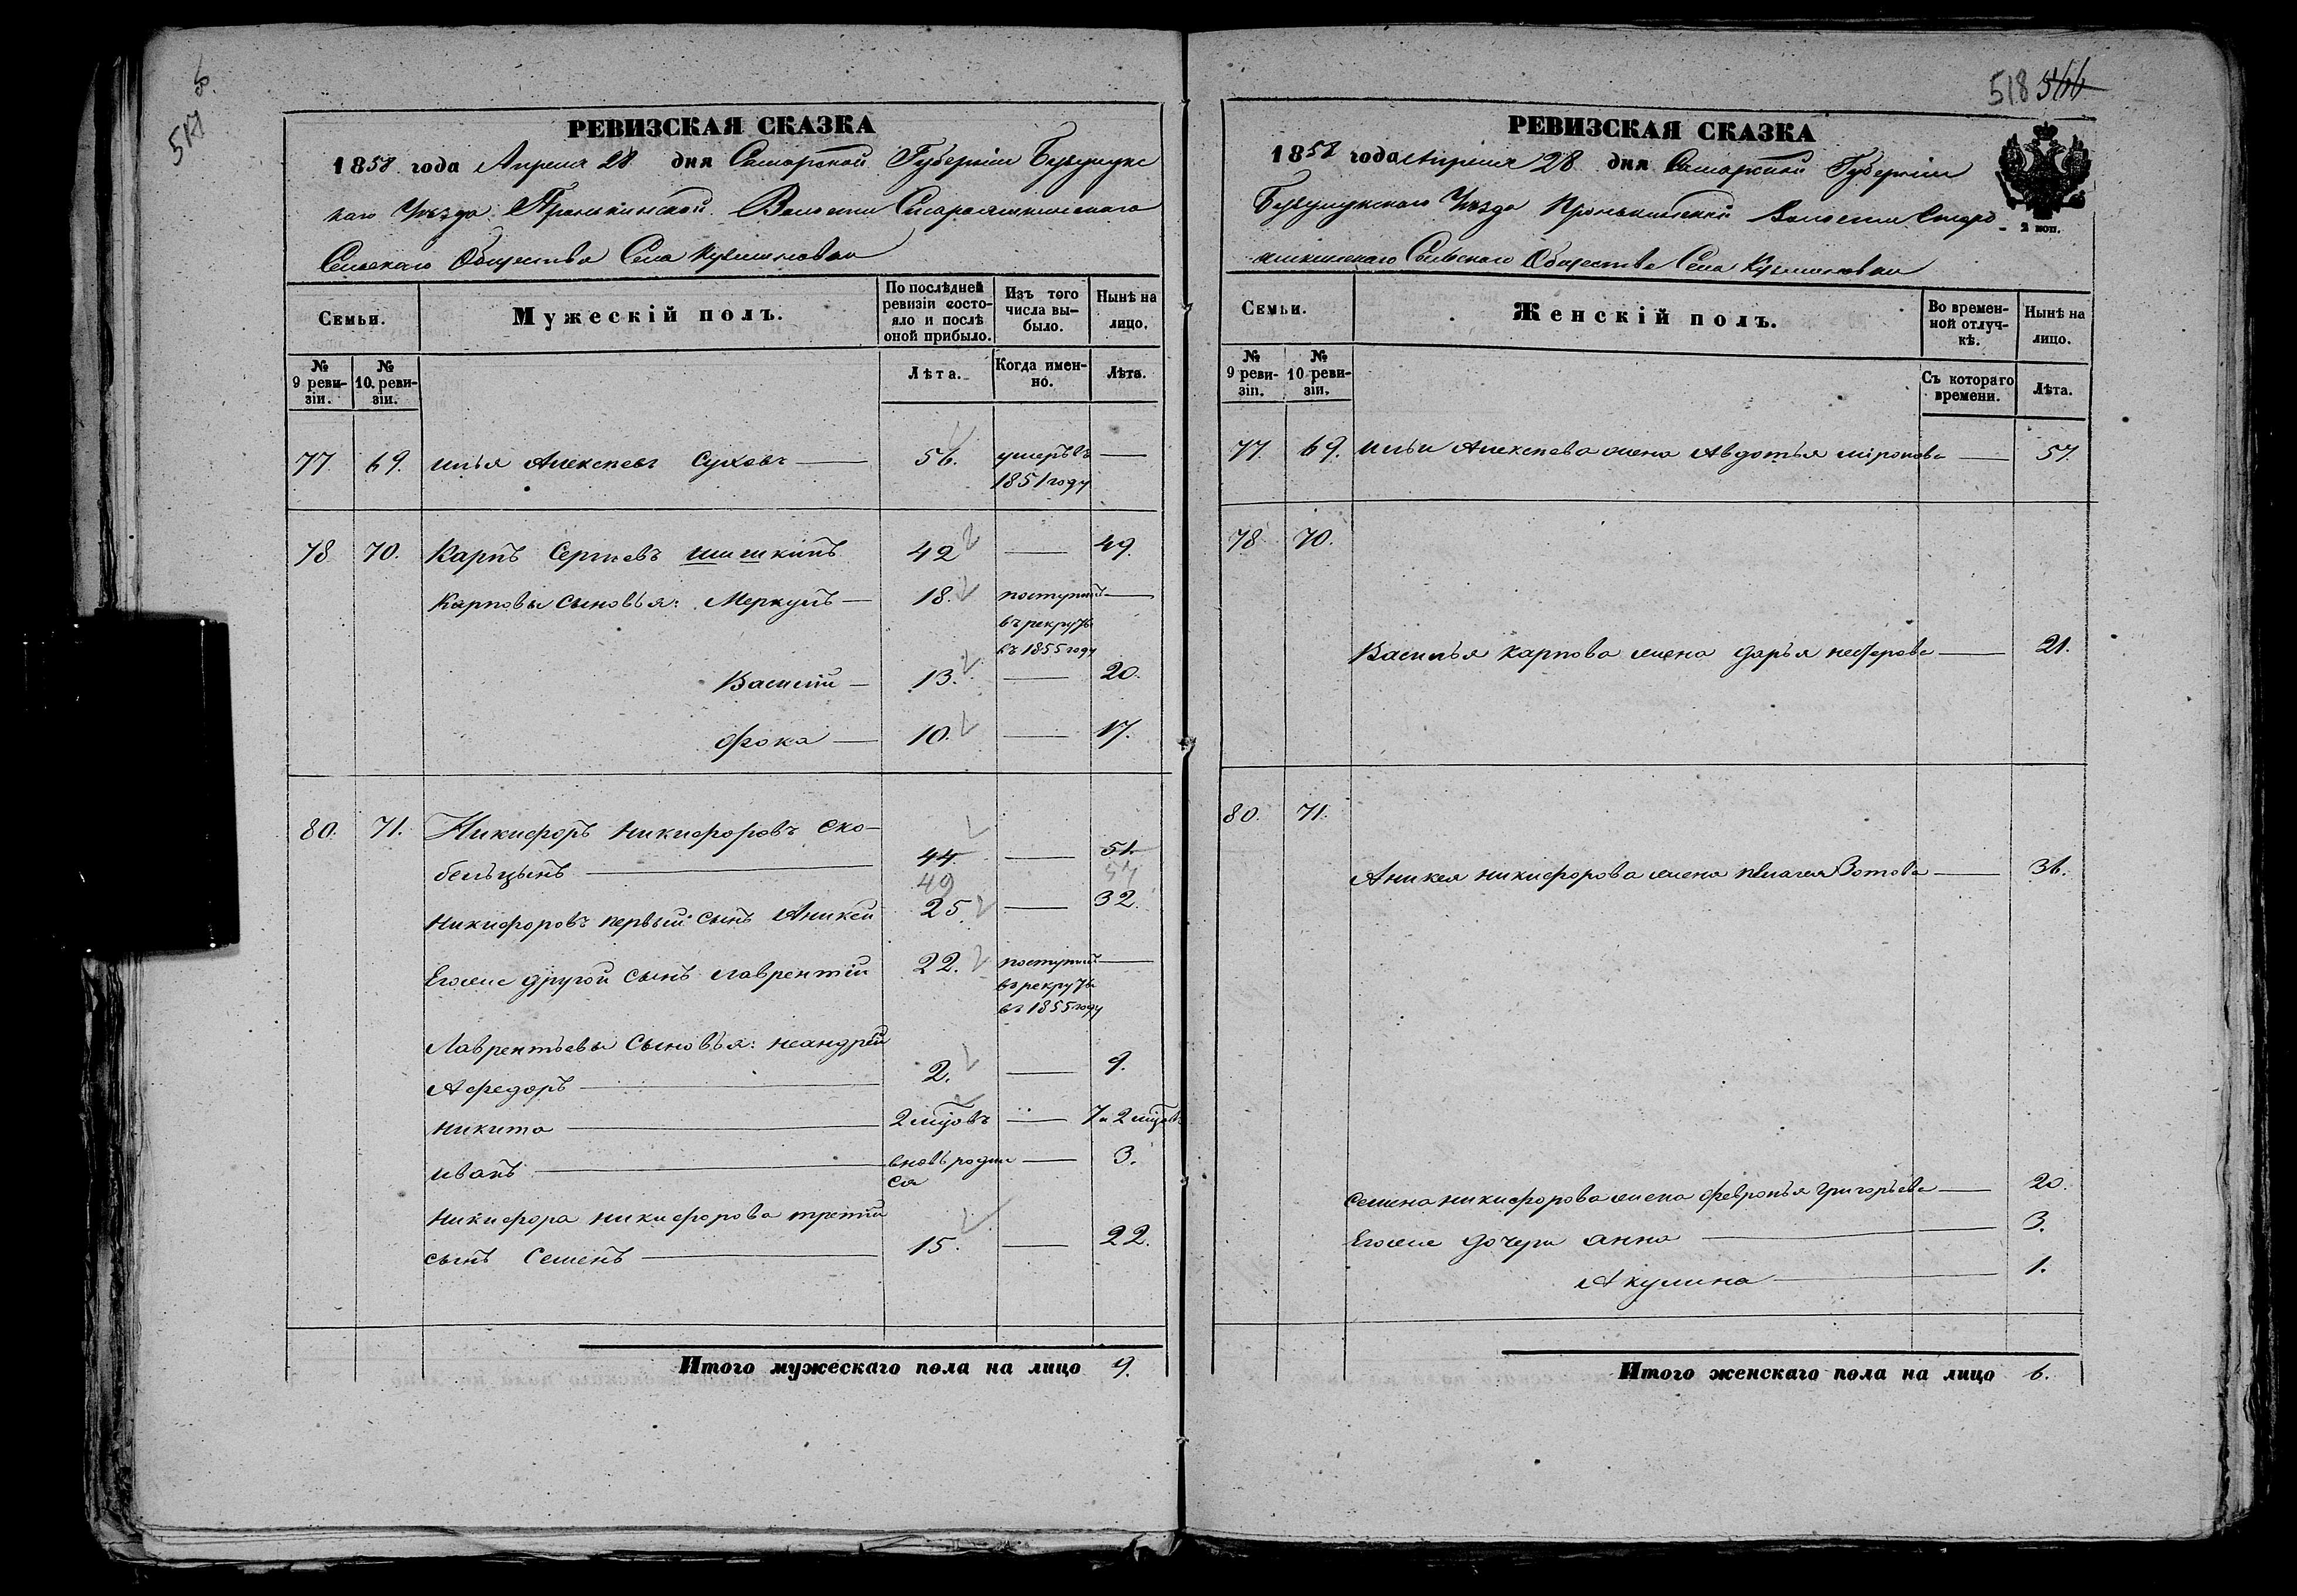 517
518 566
РЕВИЗСКАЯ СКАЗКА
1858 года Апреля 28 дня Самарской Губерніи Бузулукс
каго Уѣзда Пронькинской Волости Староякшинскаго
Сельскаго Общества Села
Семьи.
Мужескій полъ.
По послѣдней ревизіи состо-
яло и послѣ оной прибыло.
Изъ того числа вы-
было.
Нынѣ на лицо.
№ 9 реви-
зіи.
№ 10. реви-
зіи.
Лѣта.
Когда имен-
но.
Лѣта.
77 69. илья Алексѣевъ Суховъ 56. умеръ въ
1851 году
78 70. Карпъ Сергѣевъ шишкинъ 42 49.
Карповы сыновья: Меркулъ 18. поступилъ
въ рекруты
въ 1855 году
Василій 13. 20.
Фока 10. 17.
80. 71. Никифоръ Никифоровъ Ско-
бельцынъ 44. 51.
49 57
Никифоровъ первый сынъ Аникей 25. 32.
Егоже другой сынъ Лаврентій 22. поступилъ
въ рекруты
въ 1855 году
Лаврентьевы Сыновья:
Афедоръ 2. 9.
Никита 2 мцовъ 7 и 2 мцовъ
иванъ вновь родил
ся 3.
Никифора Никифорова третій
сынъ Семенъ 15. 22.
Итого мужескаго пола на лицо 9.
РЕВИЗСКАЯ СКАЗКА
1858 года Апреля 28 дня Самарской Губерніи
Бузулукскаго Уѣзда Пронькинской Волости Старо
Сельскаго Общества Села
2 коп.
Семьи.
Женскій полъ.
Во времен-
ной отлуч-
кѣ.
Нынѣ на лицо.
№ 9 реви-
зіи.
№ 10 реви-
зіи.
Съ котораго времени.
Лѣта.
77. 69. ильи Алексѣева жена Авдотья миронова 57.
78 70.
Василья карпова жена дарья 21.
80. 71.
Аникея никифорова жена пелагея Зотова 36.
Семена никифорова жена февронья григорьева 20.
Егоже дочери анна 3.
Акулина 1.
Итого женскаго пола на лицо 6.